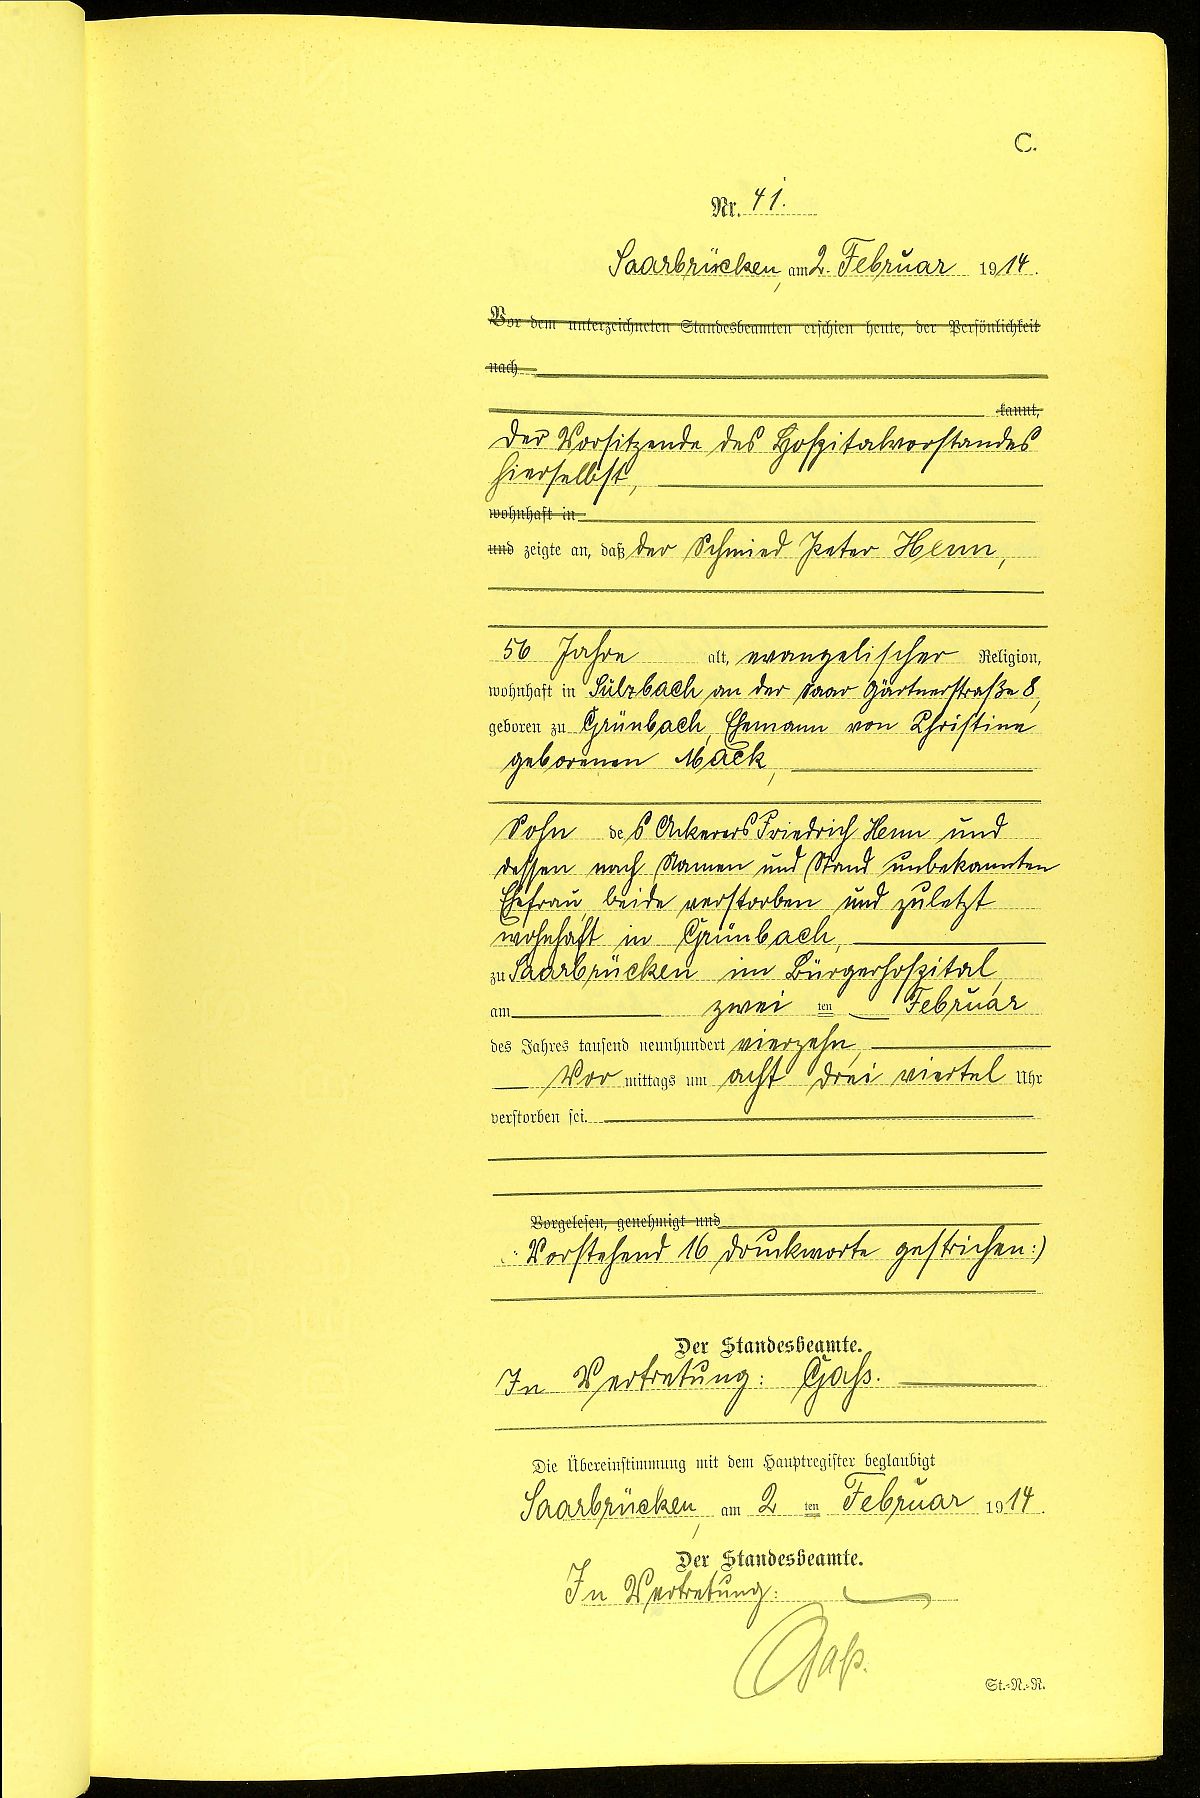 C.
Nr. 41.
Saarbrücken, am 2. Februar 1914.
Vor dem unterzeichneten Standesbeamten erschien heute, der Persönlichkeit
nach
kannt,
Der Vorsitzende des Hospitalvorstandes
hierselbst,
wohnhaft in
und zeigte an, daß der Schmied Peter Henn,
56 Jahre alt, evangelischer Religion,
wohnhaft in Sulzbach an der Saar Gärtnerstraße 8,
geboren zu Grünbach, Ehemann von Christine
geborenen Mack,
Sohn des Ackerers Friedrich Henn und
dessen nach Namen und Stand unbekannten
Ehefrau, beide verstorben und zuletzt
wohnhaft in Grünbach,
zu Saarbrücken im Bürgerhospital,
am zwei ten Februar
des Jahres tausend neunhundert vierzehn,
Vor mittags um acht drei viertel Uhr
verstorben sei.
Vorgelesen, genehmigt und
: Vorstehend 16 Druckworte gestrichen:)
Der Standesbeamte.
In Vertretung: Gaß.
Die Übereinstimmung mit dem Hauptregister beglaubigt
Saarbrücken, am 2 ten Februar 1914.
Der Standesbeamte.
In Vertretung:
Gaß.
St.-N.-R.